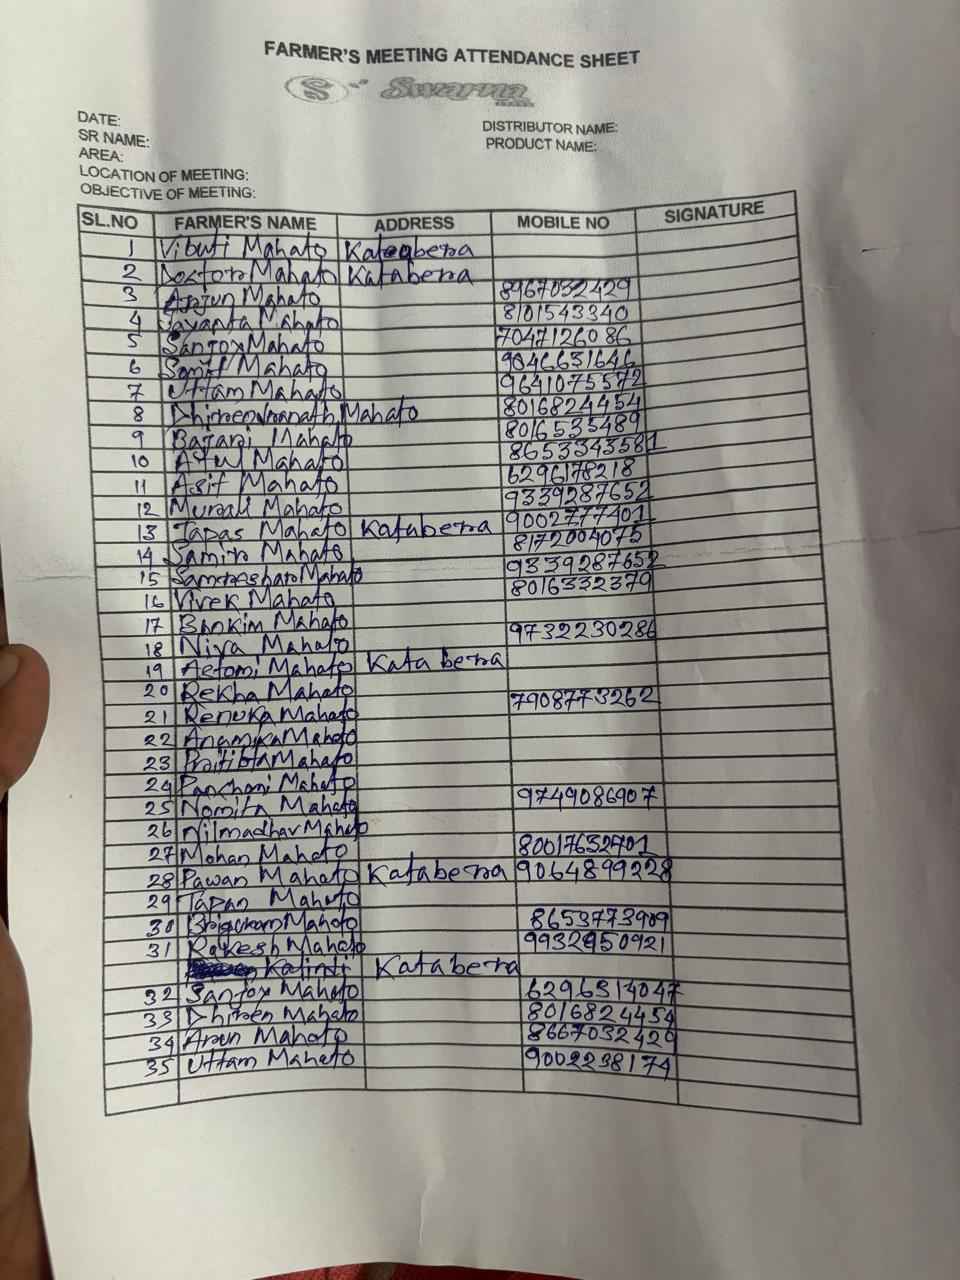 FARMER'S MEETING ATTENDANCE SHEET
S Swarna
DATE:
SR NAME:
AREA:
LOCATION OF MEETING:
OBJECTIVE OF MEETING:
DISTRIBUTOR NAME:
PRODUCT NAME:
SL.NO FARMER'S NAME ADDRESS MOBILE NO SIGNATURE
1 Vibuti Mahato Katabera
2 Doctor Mahato Katabera
3 Arjun Mahato 8967032429
4 Jayanta Mahato 8101543340
5 Santox Mahato 7047126086
6 Mahato 9046631646
7 Uttam Mahato 9641075572
8 Mahato 8016824454
9 Mahato 8016535489
10 Atul Mahato 8653343581
11 Asit Mahato 6296178218
12 Murali Mahato 9339287652
13 Tapas Mahato Katabera 9002777401
14 Samir Mahato 8172004075
15 Mahato 9339287652
16 Vivek Mahato 8016332379
17 Bankim Mahato
18 Niva Mahato 9732230286
19 Mahato Katabera
20 Rekha Mahato
21 Renuka Mahato 7908773262
22 Anamika Mahato
23 Pratibha Mahato
24 Panchami Mahato
25 Nomita Mahato 9749086907
26 Nilmadhav Mahato
27 Mohan Mahato 80017632701
28 Pawan Mahato Katabera 9064899228
29 Tapan Mahato
30 Mahato 8653773909
31 Rakesh Mahato 9932950921
Kalindi Katabera
32 Santox Mahato 6296314047
33 Dhiren Mahato 8016824454
34 Arun Mahato 8667032429
35 Uttam Mahato 9002238174